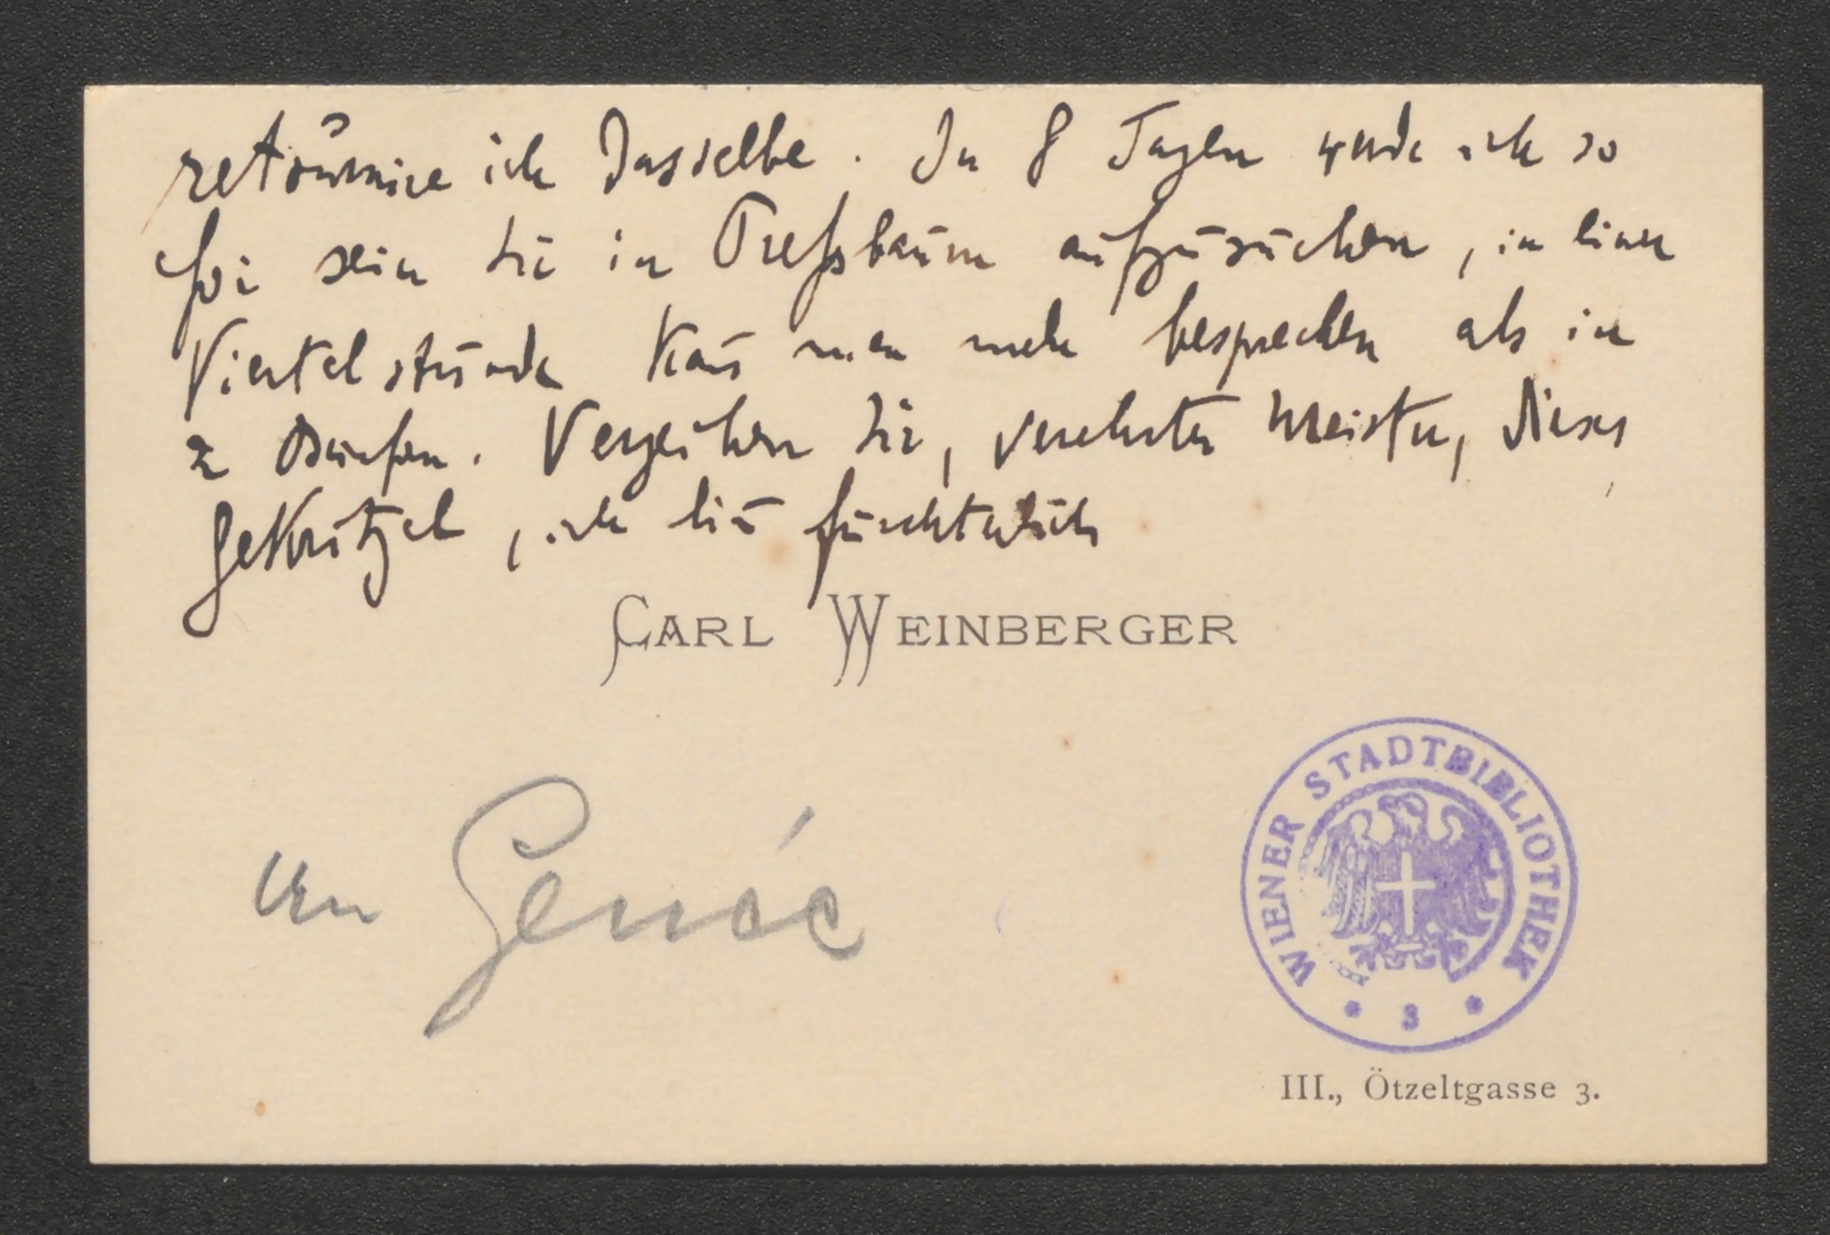 retournire ich Dasselbe. In 8 Tagen werde ich so
frei sein Sie in Preßbaum aufzusuchen, in einer
Viertelstunde kan̄ man mehr besprechen als in
2 Briefen. Verzeihen Sie, verehrter Meister, dieses
Gekritzel, ich bin fürchterlich
CARL WEINBERGER
An Genée
WIENER STADTBIBLIOTHEK
* 3 *
III., Ötzeltgasse 3.